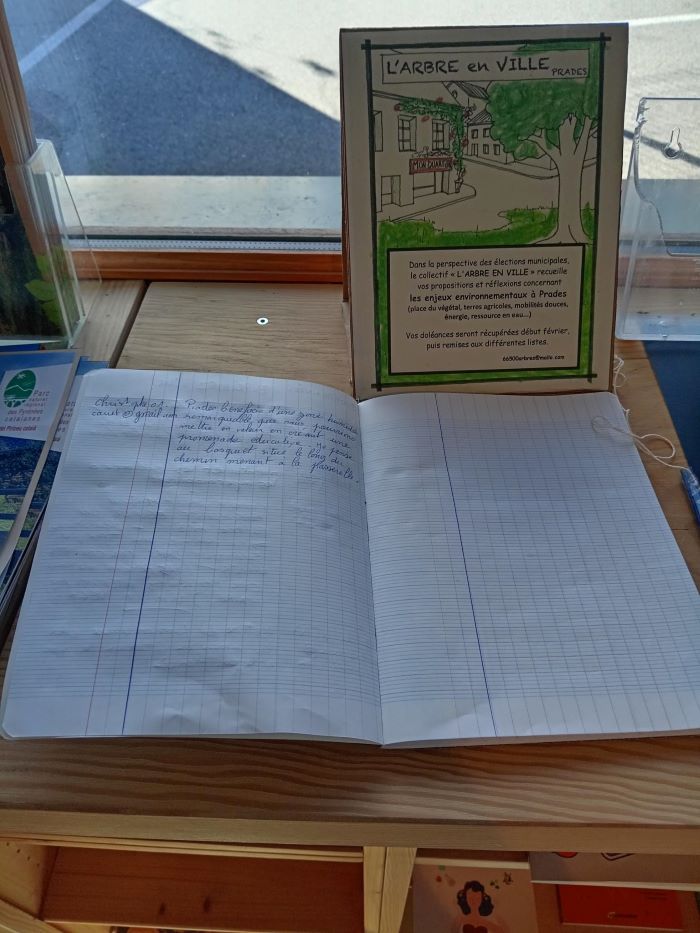 L'ARBRE en VILLE
PRADES
MON QUARTIER
Dans la perspective des élections municipales,
le collectif « L'ARBRE EN VILLE » recueille
vos propositions et réflexions concernant
les enjeux environnementaux à Prades
(place du végétal, terres agricoles, mobilités douces,
énergie, ressource en eau...)
Vos doléances seront récupérées début février,
puis remises aux différentes listes.
66500arbres@mailo.com
Parc
naturel
régional
des Pyrénées
catalanes
Prades bénéficie d'une zone humide
@gmail.com remarquable, que nous pourrions
mettre en valeur en créant une
promenade éducative, je pense
au bosquet situé le long du
chemin menant à la